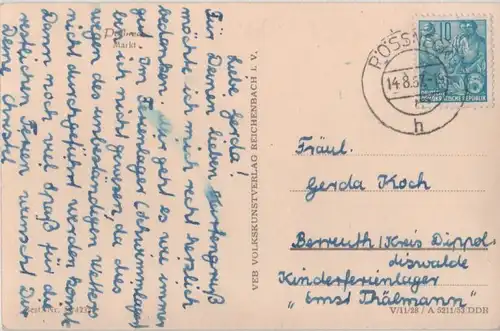 Pößneck
Markt
Liebe Gerda!
Für Deinen lieben Kartengruß
möchte ich mich recht herzlich
bedanken. Mir geht es wie immer
gut. Im Ferienlager (Schwimmlager)
bin ich nicht gewesen, da dies
wegen des unbeständigen Wetters
nicht durchgeführt werden konnte.
Dann noch viel Spaß für die
restlichen Ferien wünscht Dir
Deine Christel
Best.-Nr.
VEB VOLKSKUNSTVERLAG REICHENBACH I. V.
PÖSSNECK
14.8.57
h
DEUTSCHE DEMOKRATISCHE REPUBLIK
10
Fräul.
Gerda Koch
Berreuth/Kreis Dippol-
diswalde
Kinderferienlager
"Ernst Thälmann"
V/11/28 / A 5211/53 DDR